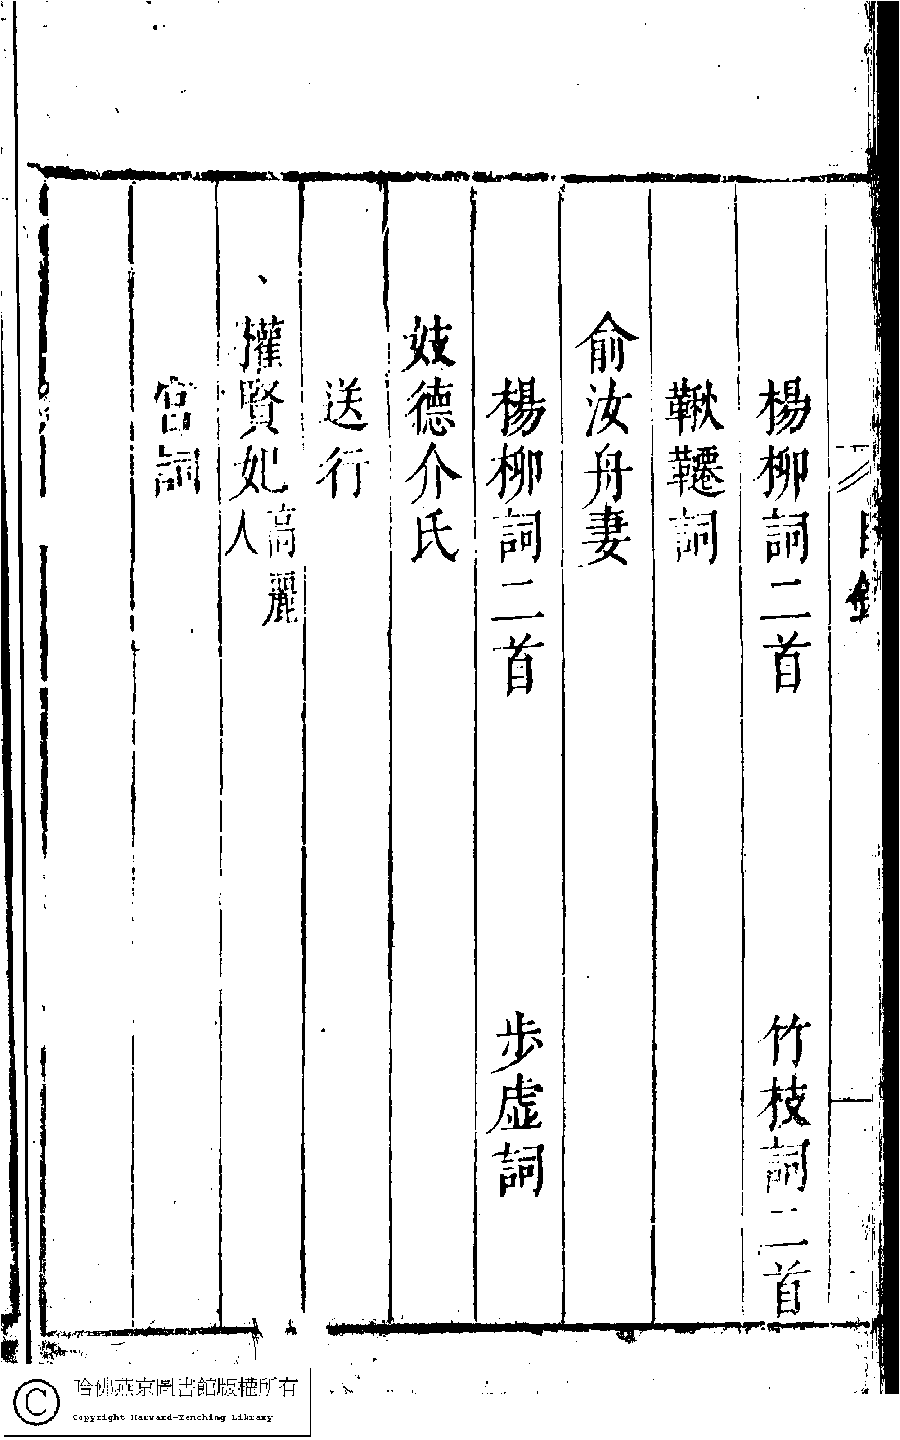 目錄
楊柳詞二首 竹枝詞二首
鞦韆詞
俞汝舟妻
楊柳詞二首 步虛詞
妓德介氏
送行
權賢妃高麗人
宮詞
哈佛燕京圖書館版權所有
Copyright Harvard-Yenching Library